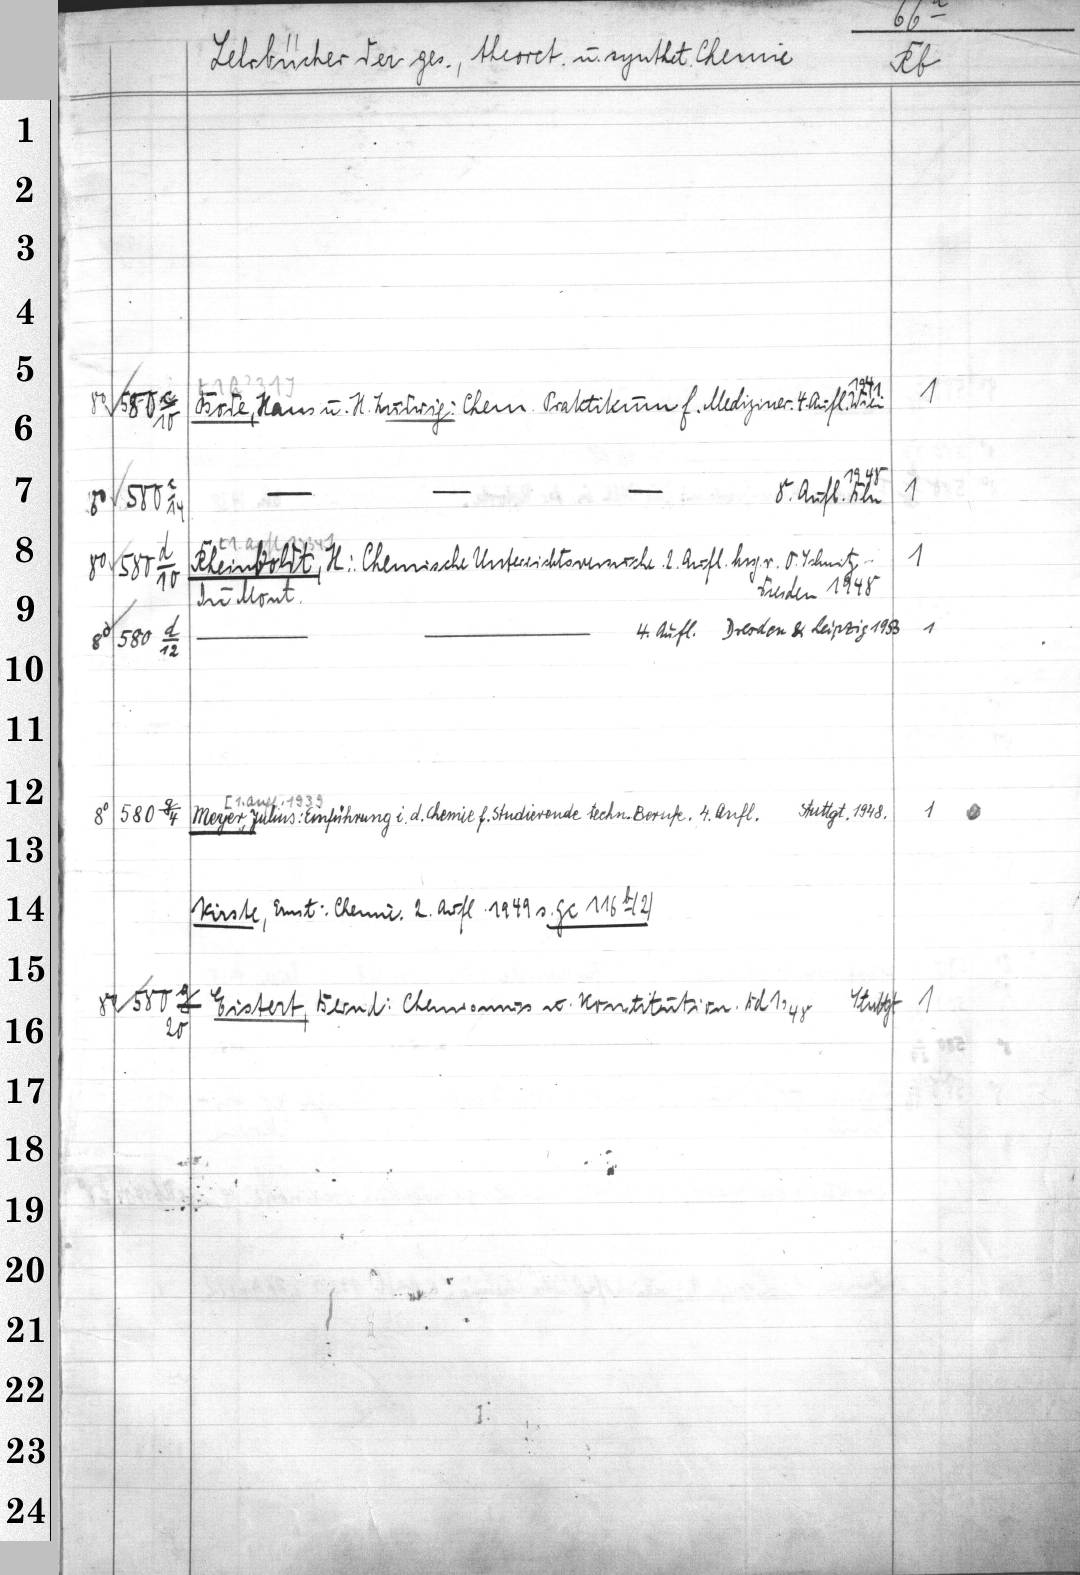 66 a
Lehrbücher der ges., theoret. u. synthet. Chemie Fb
1
2
3
4
5
8° 580 c/10 Bode, Hans u. H. Ludwig: Chem. Praktikum f. Mediziner. 4. Aufl. Wien 1941 1
6
7 8° 580 c/14 — — — 8. Aufl. Wien 1948 1
[1. Aufl. 1934]
8 8° 580 d/10 Rheinboldt, H.: Chemische Unterrichtsversuche. 2. Aufl. hrsg. v. O. Schmitz- 1
9 DuMont. Dresden 1948
8° 580 d/12 — — 4. Aufl. Dresden & Leipzig 1953 1
10
11
12 [1. Aufl. 1939
8° 580 g/4 Meyer, Julius: Einführung i. d. Chemie f. Studierende techn. Berufe. 4. Aufl. Stuttgt. 1948. 1
13
14 Kirste, Ernst: Chemie. 2. Aufl. 1949 s. gc 116 b (2)
15
8° 580 g/20 Eistert, Bernd: Chemismus u. Konstitution. Bd 1. 48 Stuttgt 1
16
17
18
19
20
21
22
23
24